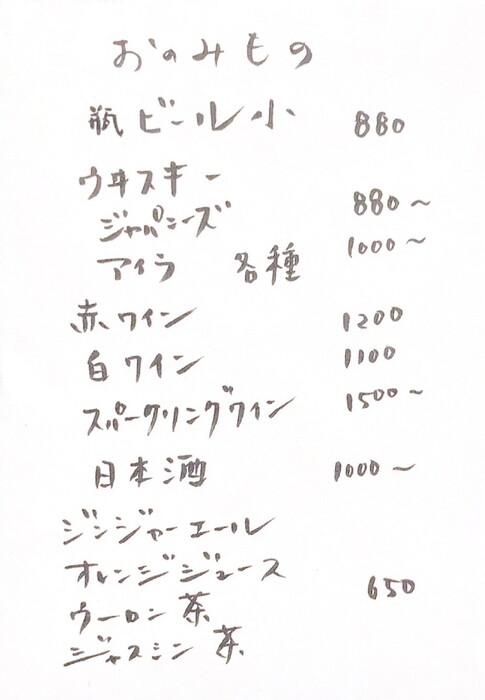 おのみもの
瓶ビール小 880
ウヰスキー
ジャパニーズ 880～
アイラ 各種 1000～
赤ワイン 1200
白ワイン 1100
スパークリングワイン 1500～
日本酒 1000～
ジンジャーエール
オレンジジュース
ウーロン茶 650
ジャスミン茶